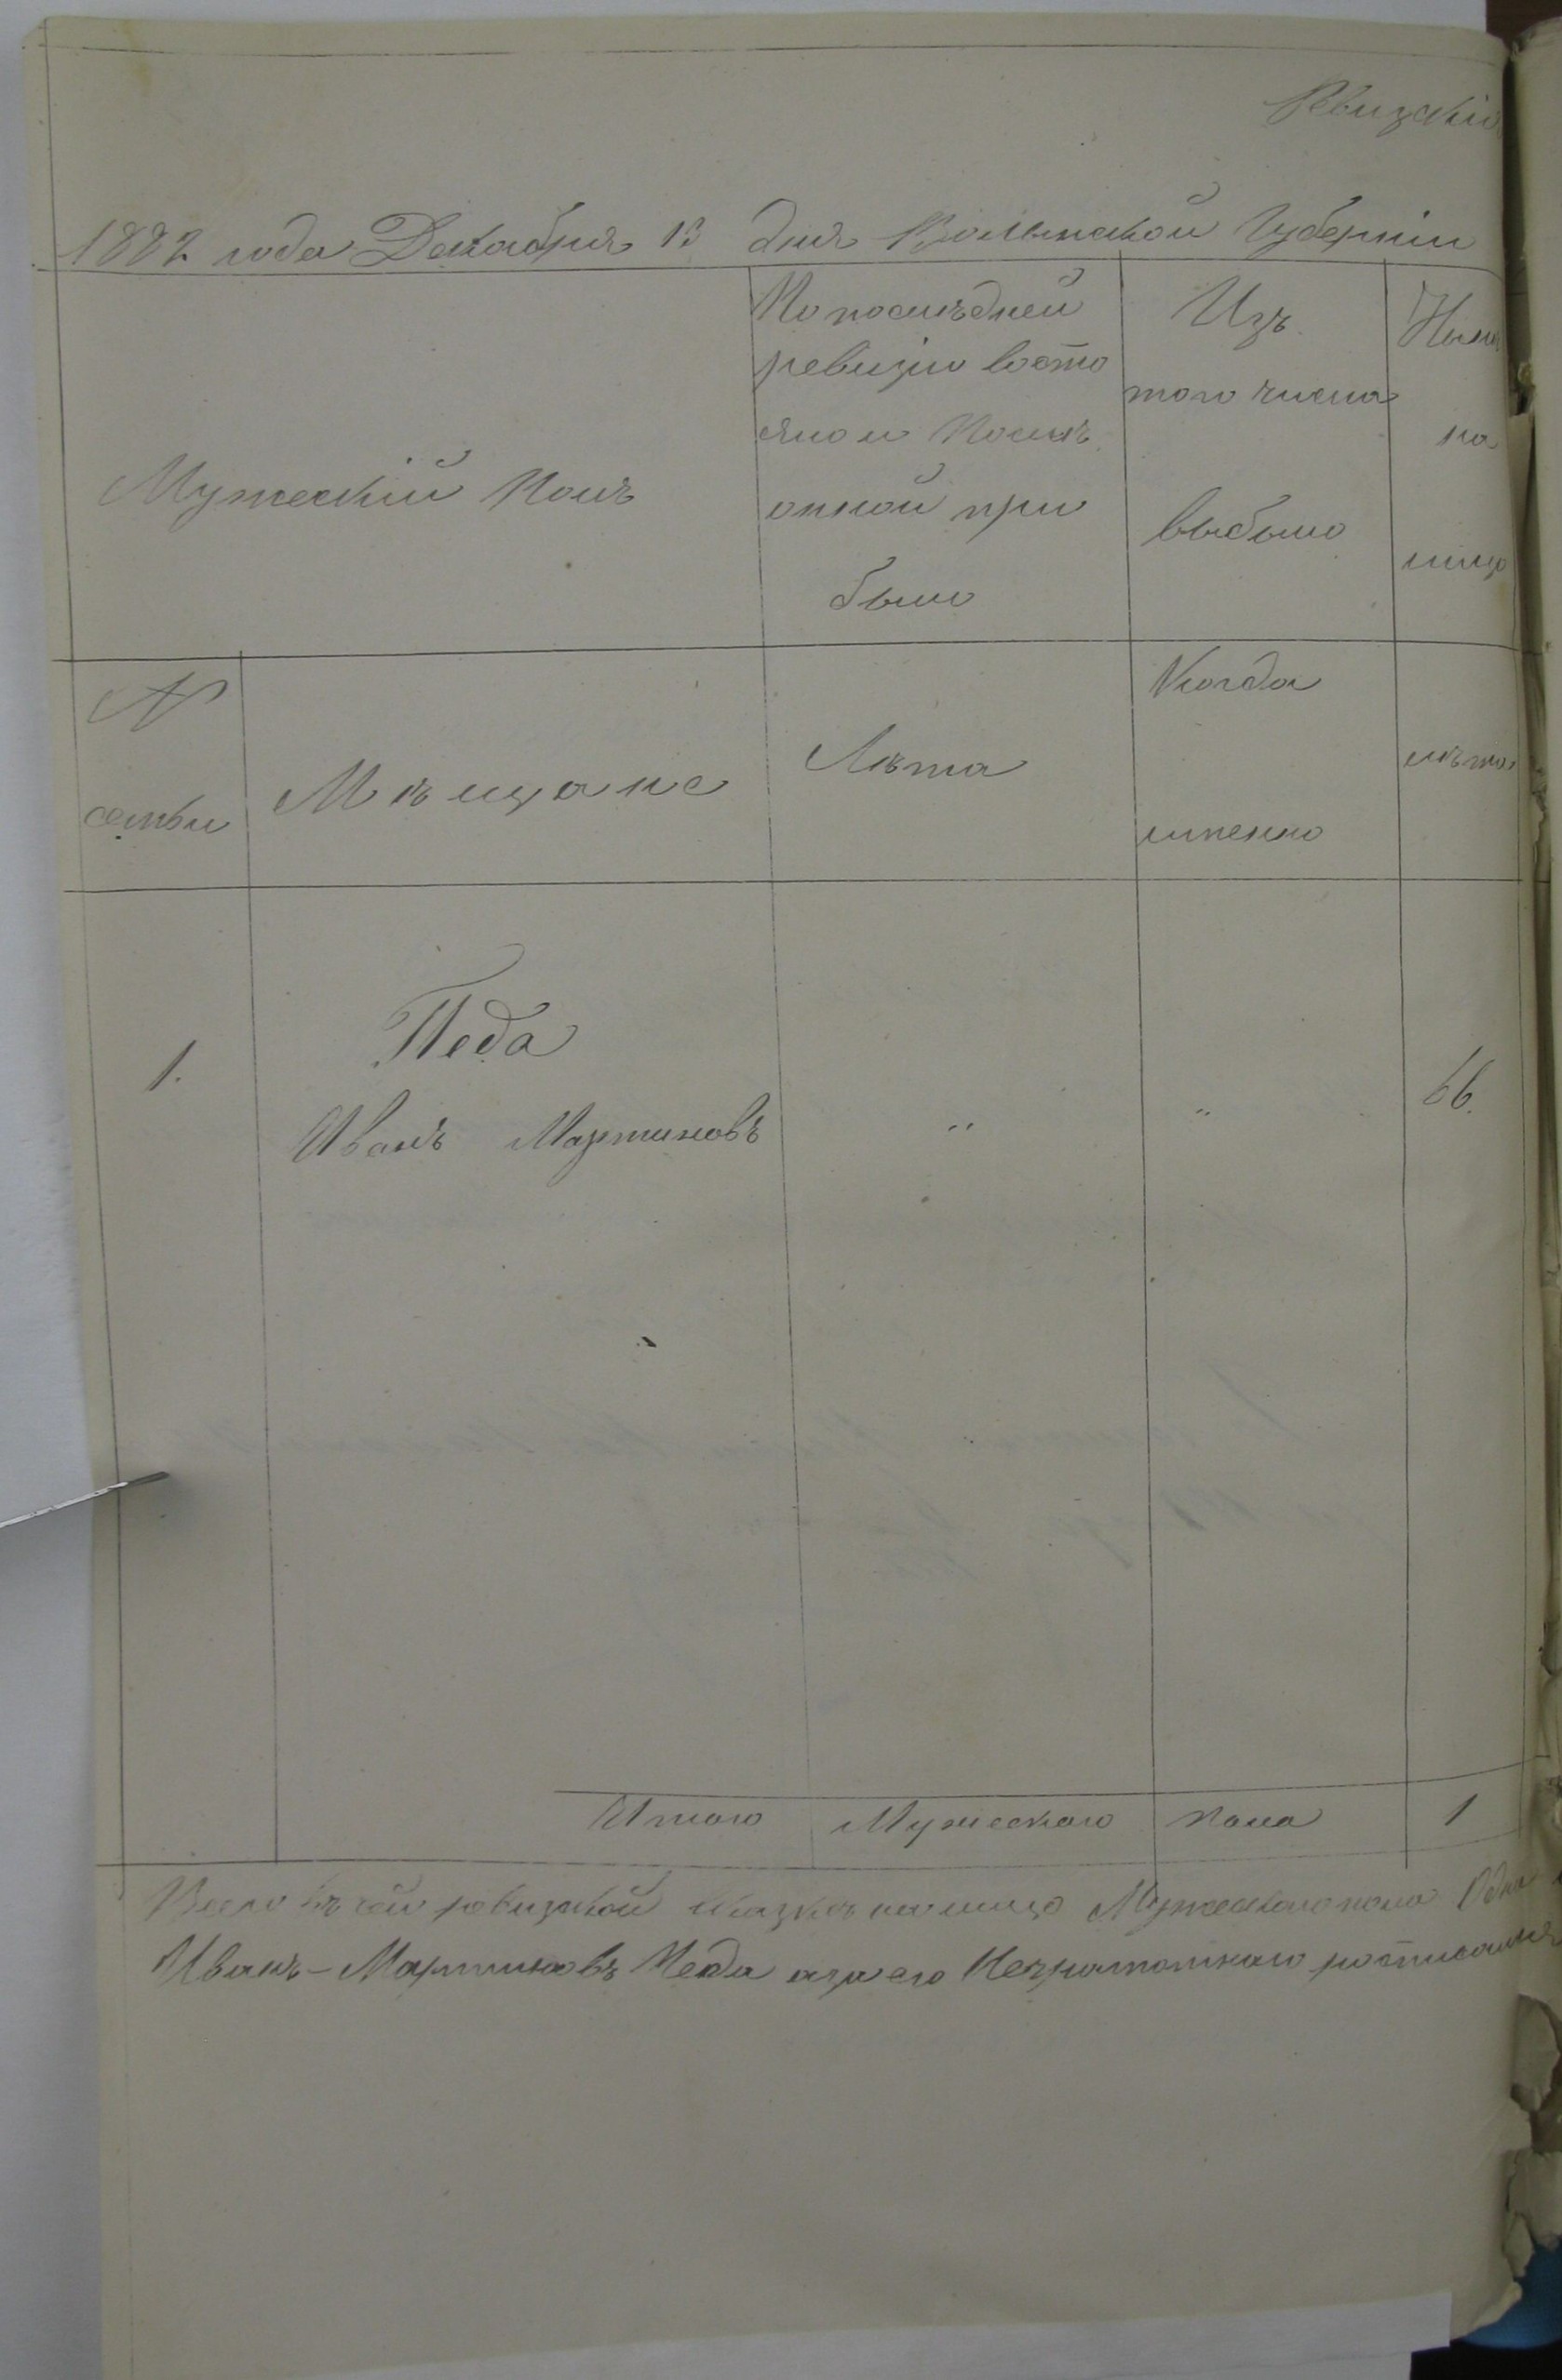 Ревизкія
1882 года Декабря 13 дня Волынской Губерніи
Мужескій Полъ
По послѣдней
ревизіи восто
яно и послѣ
оной при
было
Изъ
того числа
выбыло
Нынѣ
на
лицо
№
семьи
Мѣщане
Лѣта
Когда
именно
лѣта
1.
Педа
Иванъ Мартиновъ
"
"
66.
Итого Мужескаго пола 1
Всего въ сей ревизкой сказкѣ на лицо Мужескаго пола Одна
Иванъ-Мартиновъ Педа а за его Неграмотнаго росписался